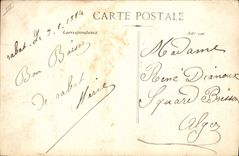 CARTE POSTALE
Correspondance
Adresse
rabat. Le 3.1.1914
Bon Baiser
de rabat
Marie
Madame
René
Square Bresson
Alger